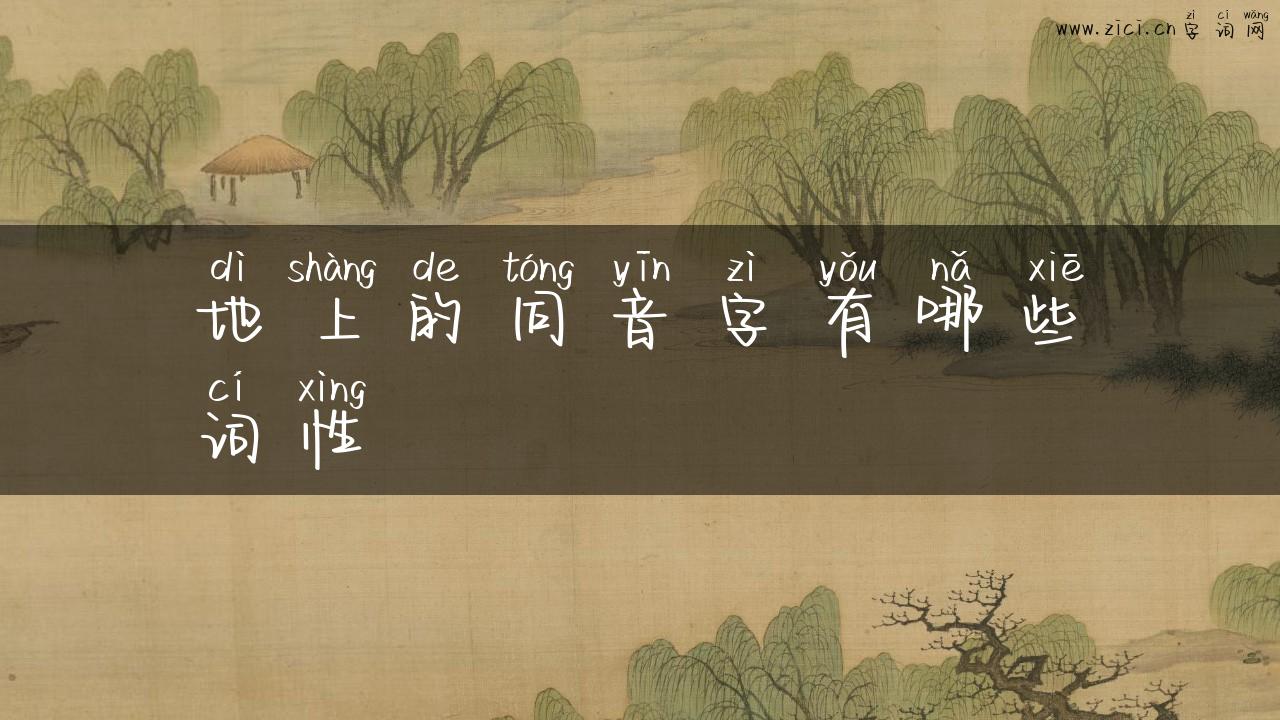 zì cí wǎng
www.zici.cn 字 词 网
dì shàng de tóng yīn zì yǒu nǎ xiē
地 上 的 同 音 字 有 哪 些
cí xìng
词 性